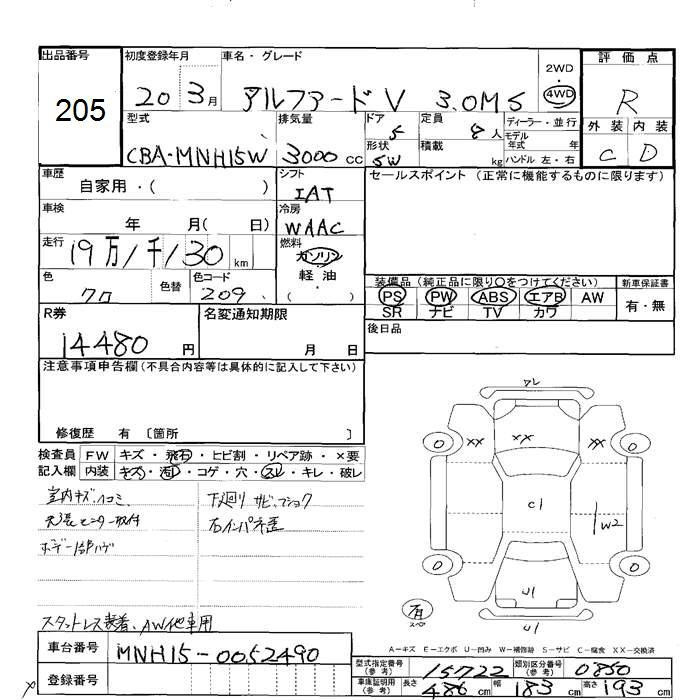 出品番号 初度登録年月 車名・グレード 評価点
205 20 3月 アルファード V 3.0MS 2WD・4WD R
型式 排気量 ドア 定員 ディーラー・並行 外装 内装
CBA-MNH15W 3000cc 5 8人 モデル年式 年 C D
形状 5W 積載 kg ハンドル 左・右
車歴 シフト セールスポイント (正常に機能するものに限ります)
自家用・( ) IAT
車検 冷房
年 月( 日) WAAC
走行 燃料
19万/千/30km ガソリン
色 色替 色コード 軽油 装備品 (純正品に限り○をつけてください) 新車保証書
クロ 209 ・( ) PS PW ABS エアB AW 有・無
SR ナビ TV カワ
R券 名変通知期限 後日品
14480円 月 日
注意事項申告欄(不具合内容等は具体的に記入して下さい)
修復歴 有 〔箇所 〕
アレ
検査員 FW キズ・飛石・ヒビ割・リペア跡・×要
記入欄 内装 キズ・汚・コゲ・穴・スレ・キレ・破レ
XX XX XX
0 0
室内キズ、 下廻り サビ
取付 右インパネ歪
ボデー
C1 W2
0 0
U1
有
スペア
U1
スタットレス装着、AW他車用
A-キズ E-エクボ U-凹み W-補修跡 S-サビ C-腐食 XX-交換済
車台番号 MNH15-0052490
型式指定番号(参考) 15722 類別区分番号(参考) 0850
登録番号 車庫証明用(参考) 長さ 486cm 幅 183cm 高さ 193cm